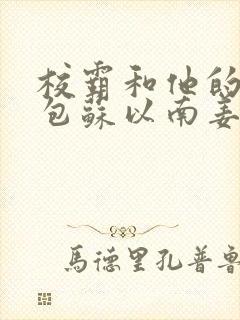 校霸和他的
包蘇以南姜
馬德里孔普魯